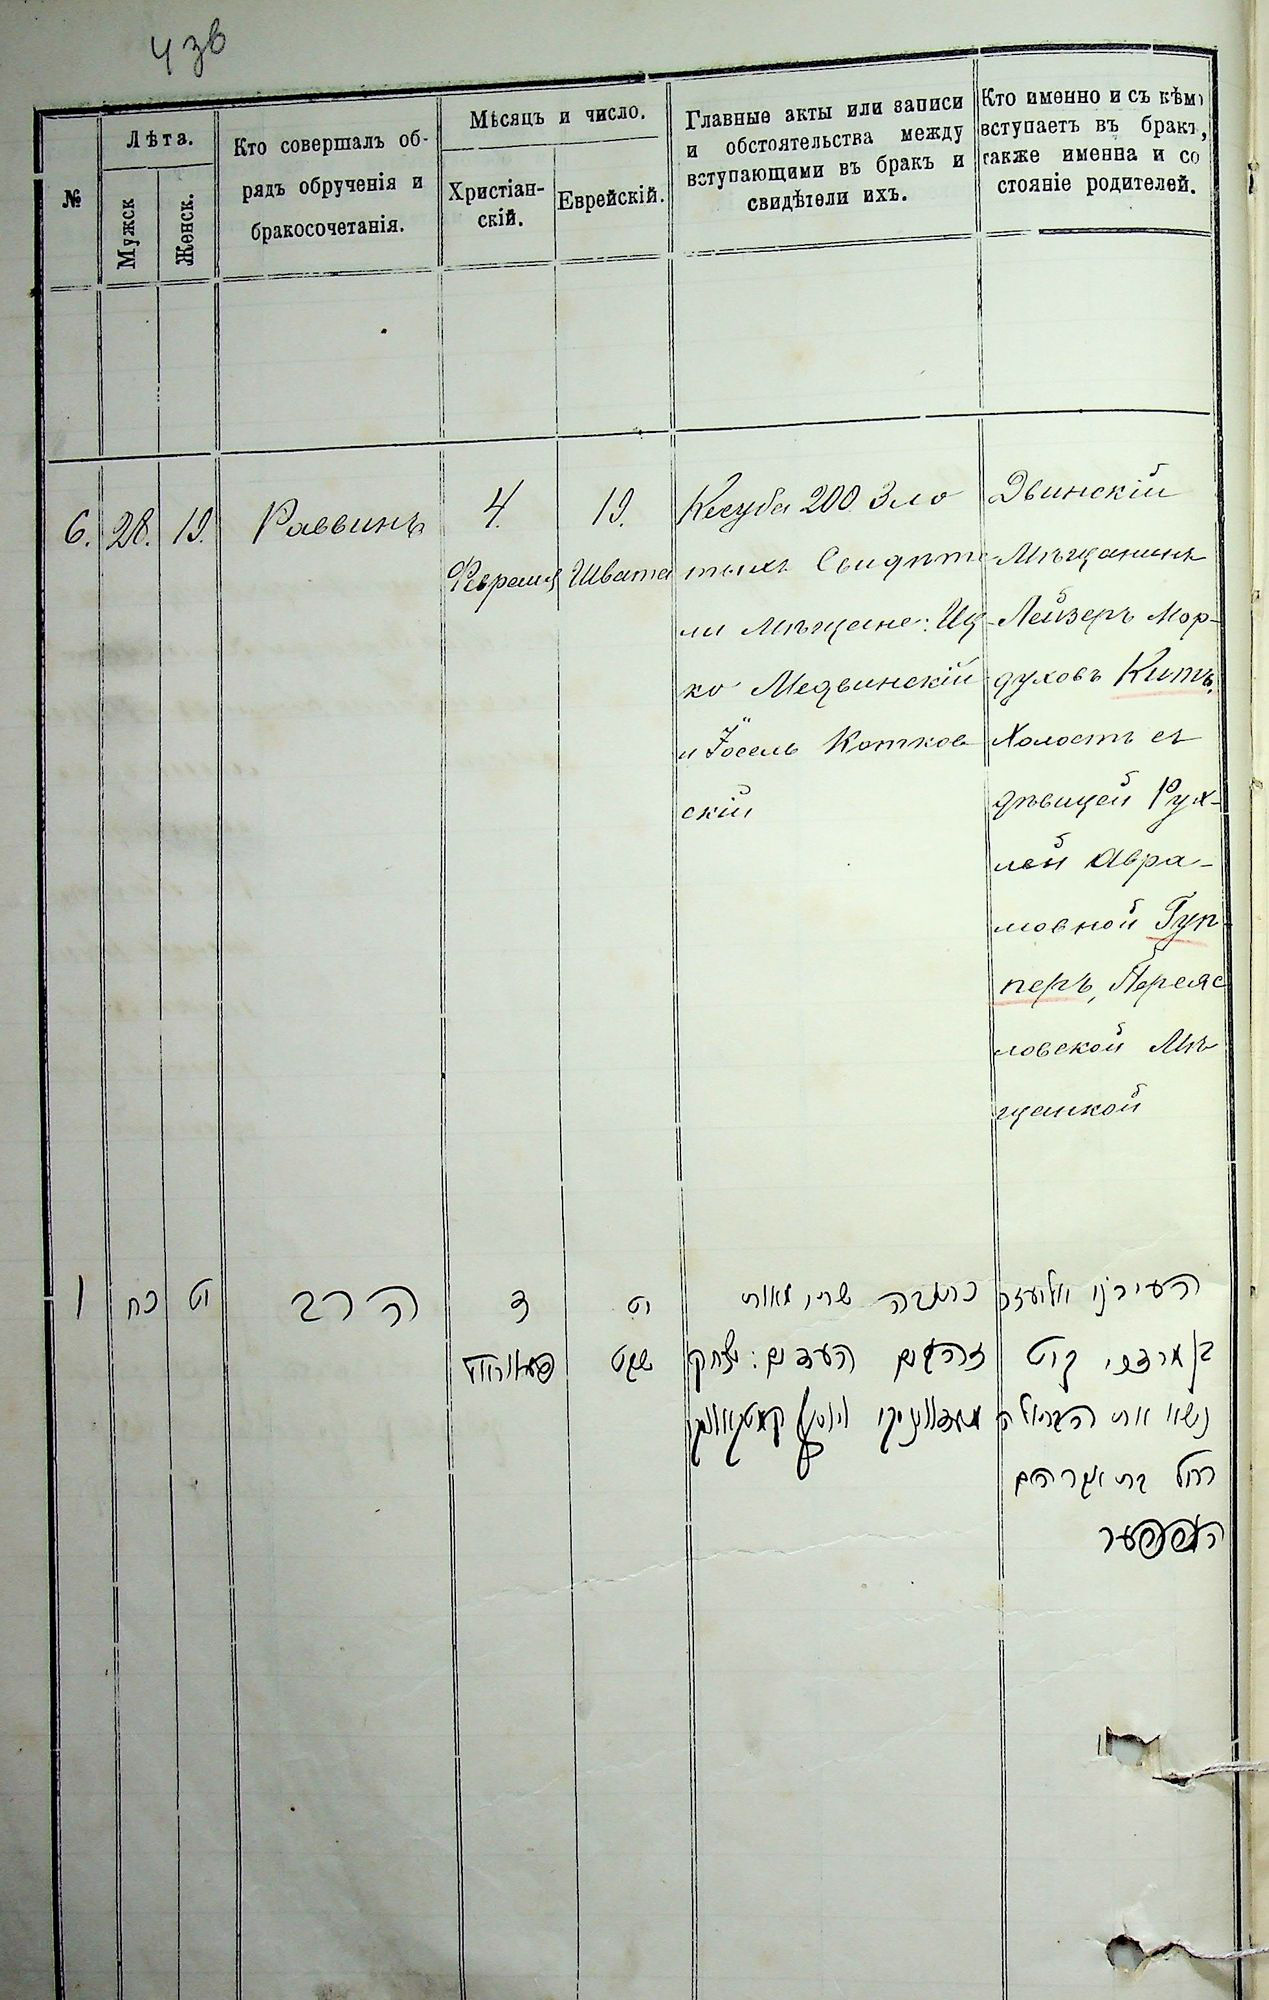 436
№
Лѣта.
Мужск
Женск.
Кто совершалъ об-
рядъ обрученія и
бракосочетанія.
Мѣсяцъ и число.
Христіан-
скій.
Еврейскій.
Главные акты или записи
и обстоятельства между
вступающими въ бракъ и
свидѣтели ихъ.
Кто именно и съ кѣмъ
вступаетъ въ бракъ,
также имена и со
стояніе родителей.
6.
28.
19.
Раввинъ
4.
Февраля
19.
Швата
Кесуба 200 Зло
тыхъ Свидѣте
ли Мѣщане: Иц-
ко Медвинскій
и Іосель Котков
скій
Двинскій
Мѣщанинъ
Лейзеръ Мор-
духовъ Китъ,
Холостъ съ
дѣвицей Рух-
лей Авра-
мовной Гуп-
перъ, Переяс
ловской Мѣ
щанкой
כח
יט
הרב
ד
יט
שבט
כתובה שתי מאות
זהובים העדים: יצחק
בן מרדכי קיט
נשא את הבתולה
רחל בת אברהם